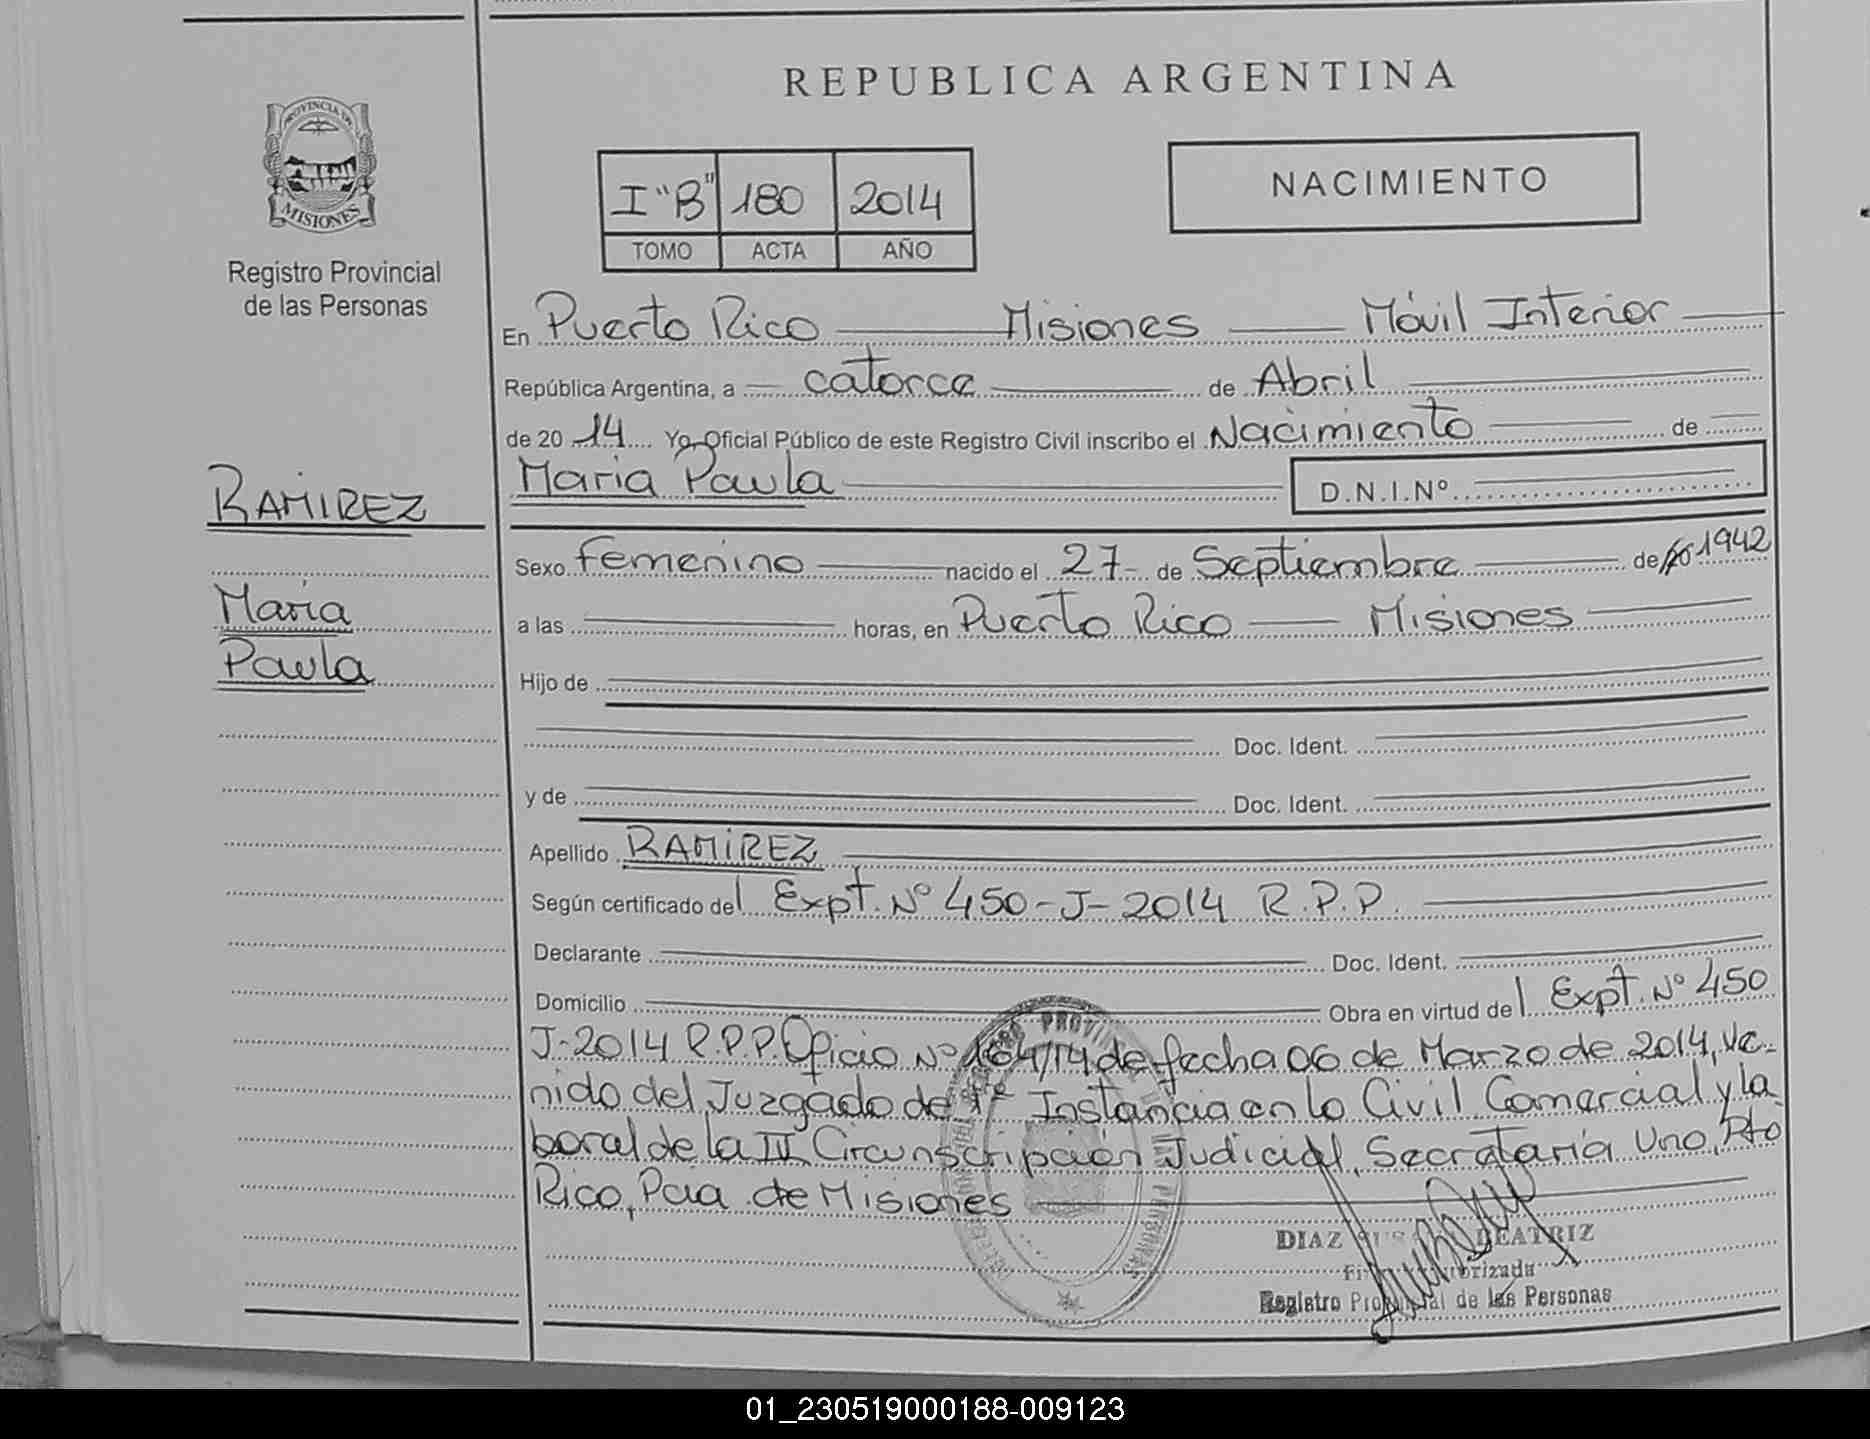 REPUBLICA ARGENTINA
PROVINCIA DE
MISIONES
Registro Provincial
de las Personas
I "B" 180 2014
TOMO ACTA AÑO
NACIMIENTO
En Puerto Rico Misiones Móvil Interior
República Argentina, a catorce de Abril
de 20 14 Yo Oficial Público de este Registro Civil inscribo el Nacimiento de
Maria Paula D.N.I.Nº
RAMIREZ
Maria
Paula
Sexo Femenino nacido el 27 de Septiembre de 1942
a las horas, en Puerto Rico Misiones
Hijo de
Doc. Ident.
y de Doc. Ident.
Apellido RAMIREZ
Según certificado del Expt. Nº 450-J-2014 R.P.P.
Declarante Doc. Ident.
Domicilio Obra en virtud del Expt. Nº 450
J-2014 R.P.P. Oficio Nº 164/14 de fecha 06 de Marzo de 2014, ve-
nido del Juzgado de 1º Instancia en lo Civil Comercial y la
boral de la IV Circunscripción Judicial, Secretaría Uno, Pto
Rico, Pcia de Misiones
DIAZ BEATRIZ
Registro Provincial de las Personas
01_230519000188-009123